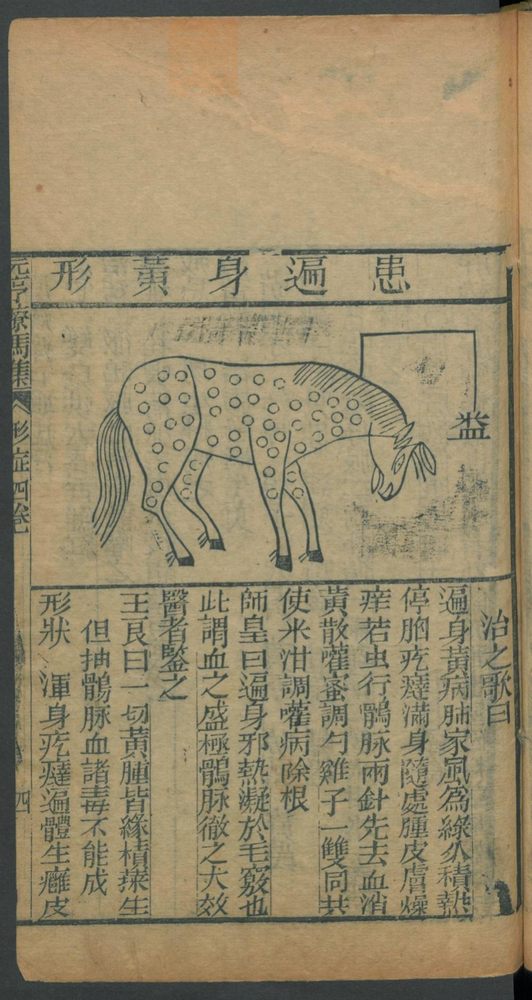 患遍身黃形
益
治之歌曰
遍身黃病肺家風為緣久積熱
停胷疙瘩滿身隨處腫皮膚燥
痒若虫行鶻脉兩針先去血消
黃散嚾蜜調勻雞子一雙同共
使米泔調嚾病除根
師皇曰遍身邪熱凝於毛竅也
此謂血之盛極鶻脉徹之大效
醫者鑒之
王良曰一切黃腫皆緣積𤍠生
但抽鶻脉血諸毒不能成
形狀 渾身疙瘩遍體生癰皮
元亨療馬集 形症四卷
四